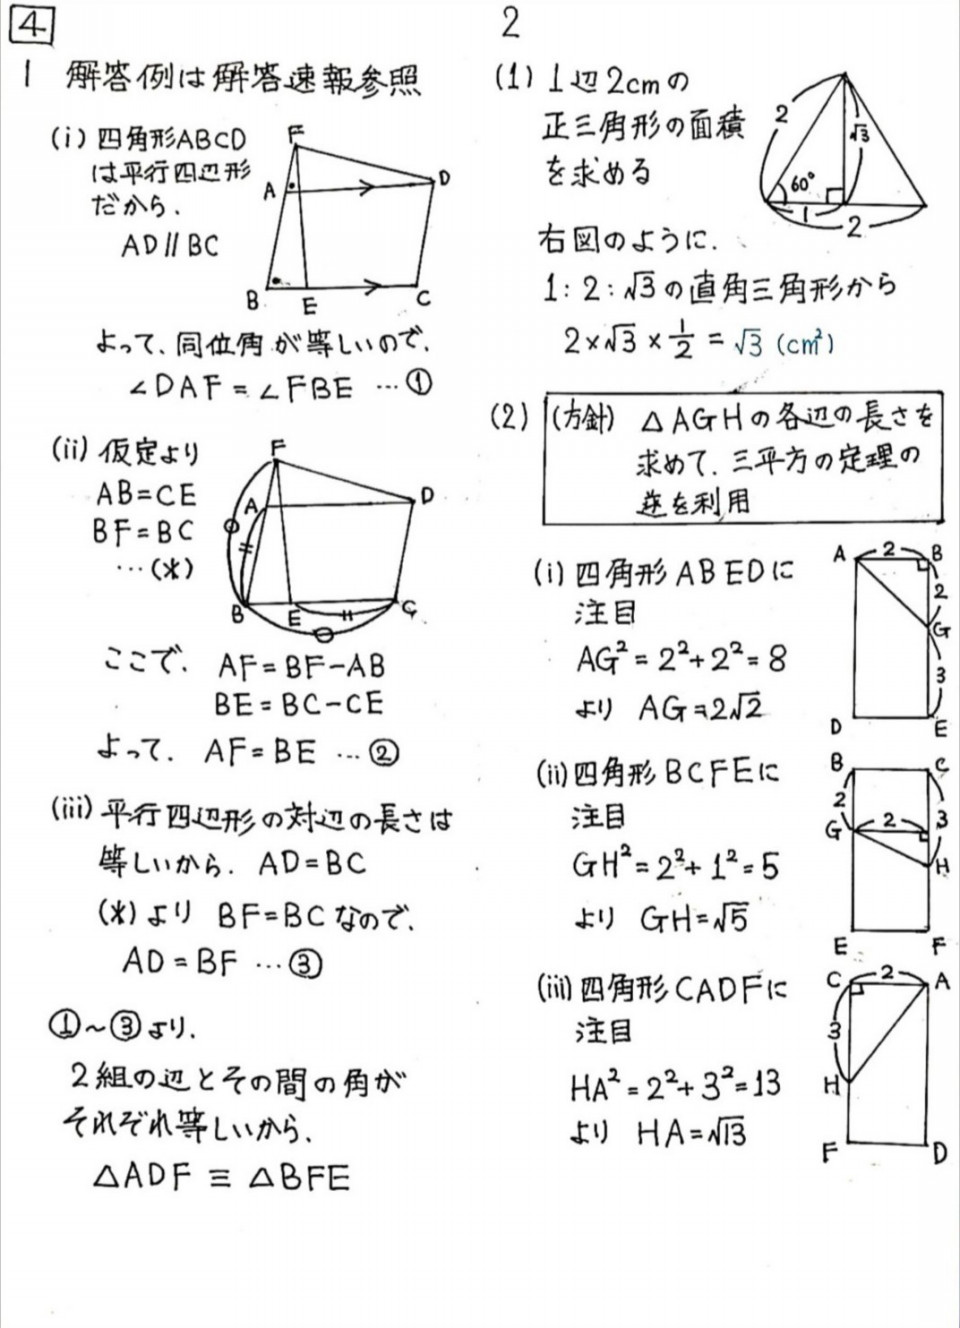 4
1 解答例は解答速報参照
(i) 四角形ABCD
は平行四辺形
だから.
AD∥BC
F
A
D
B
E
C
よって、同位角が等しいので.
∠DAF = ∠FBE …①
(ii) 仮定より
AB=CE
BF=BC
…(*)
F
A
D
B
E
C
ここで. AF=BF−AB
BE=BC−CE
よって. AF=BE …②
(iii) 平行四辺形の対辺の長さは
等しいから. AD=BC
(*)より BF=BCなので.
AD=BF …③
①~③より.
2組の辺とその間の角が
それぞれ等しいから.
△ADF ≡ △BFE
2
(1) 1辺2cmの
正三角形の面積
を求める
2
√3
60°
1
2
右図のように.
1:2:√3の直角三角形から
2×√3×1/2=√3 (cm²)
(2) (方針) △AGHの各辺の長さを
求めて. 三平方の定理の
逆を利用
(i) 四角形ABEDに
注目
AG²=2²+2²=8
より AG=2√2
A 2 B
2
G
3
D E
(ii) 四角形BCFEに
注目
GH²=2²+1²=5
より GH=√5
B C
2
3
G 2
H
E F
(iii) 四角形CADFに
注目
HA²=2²+3²=13
より HA=√13
C 2 A
3
H
F D